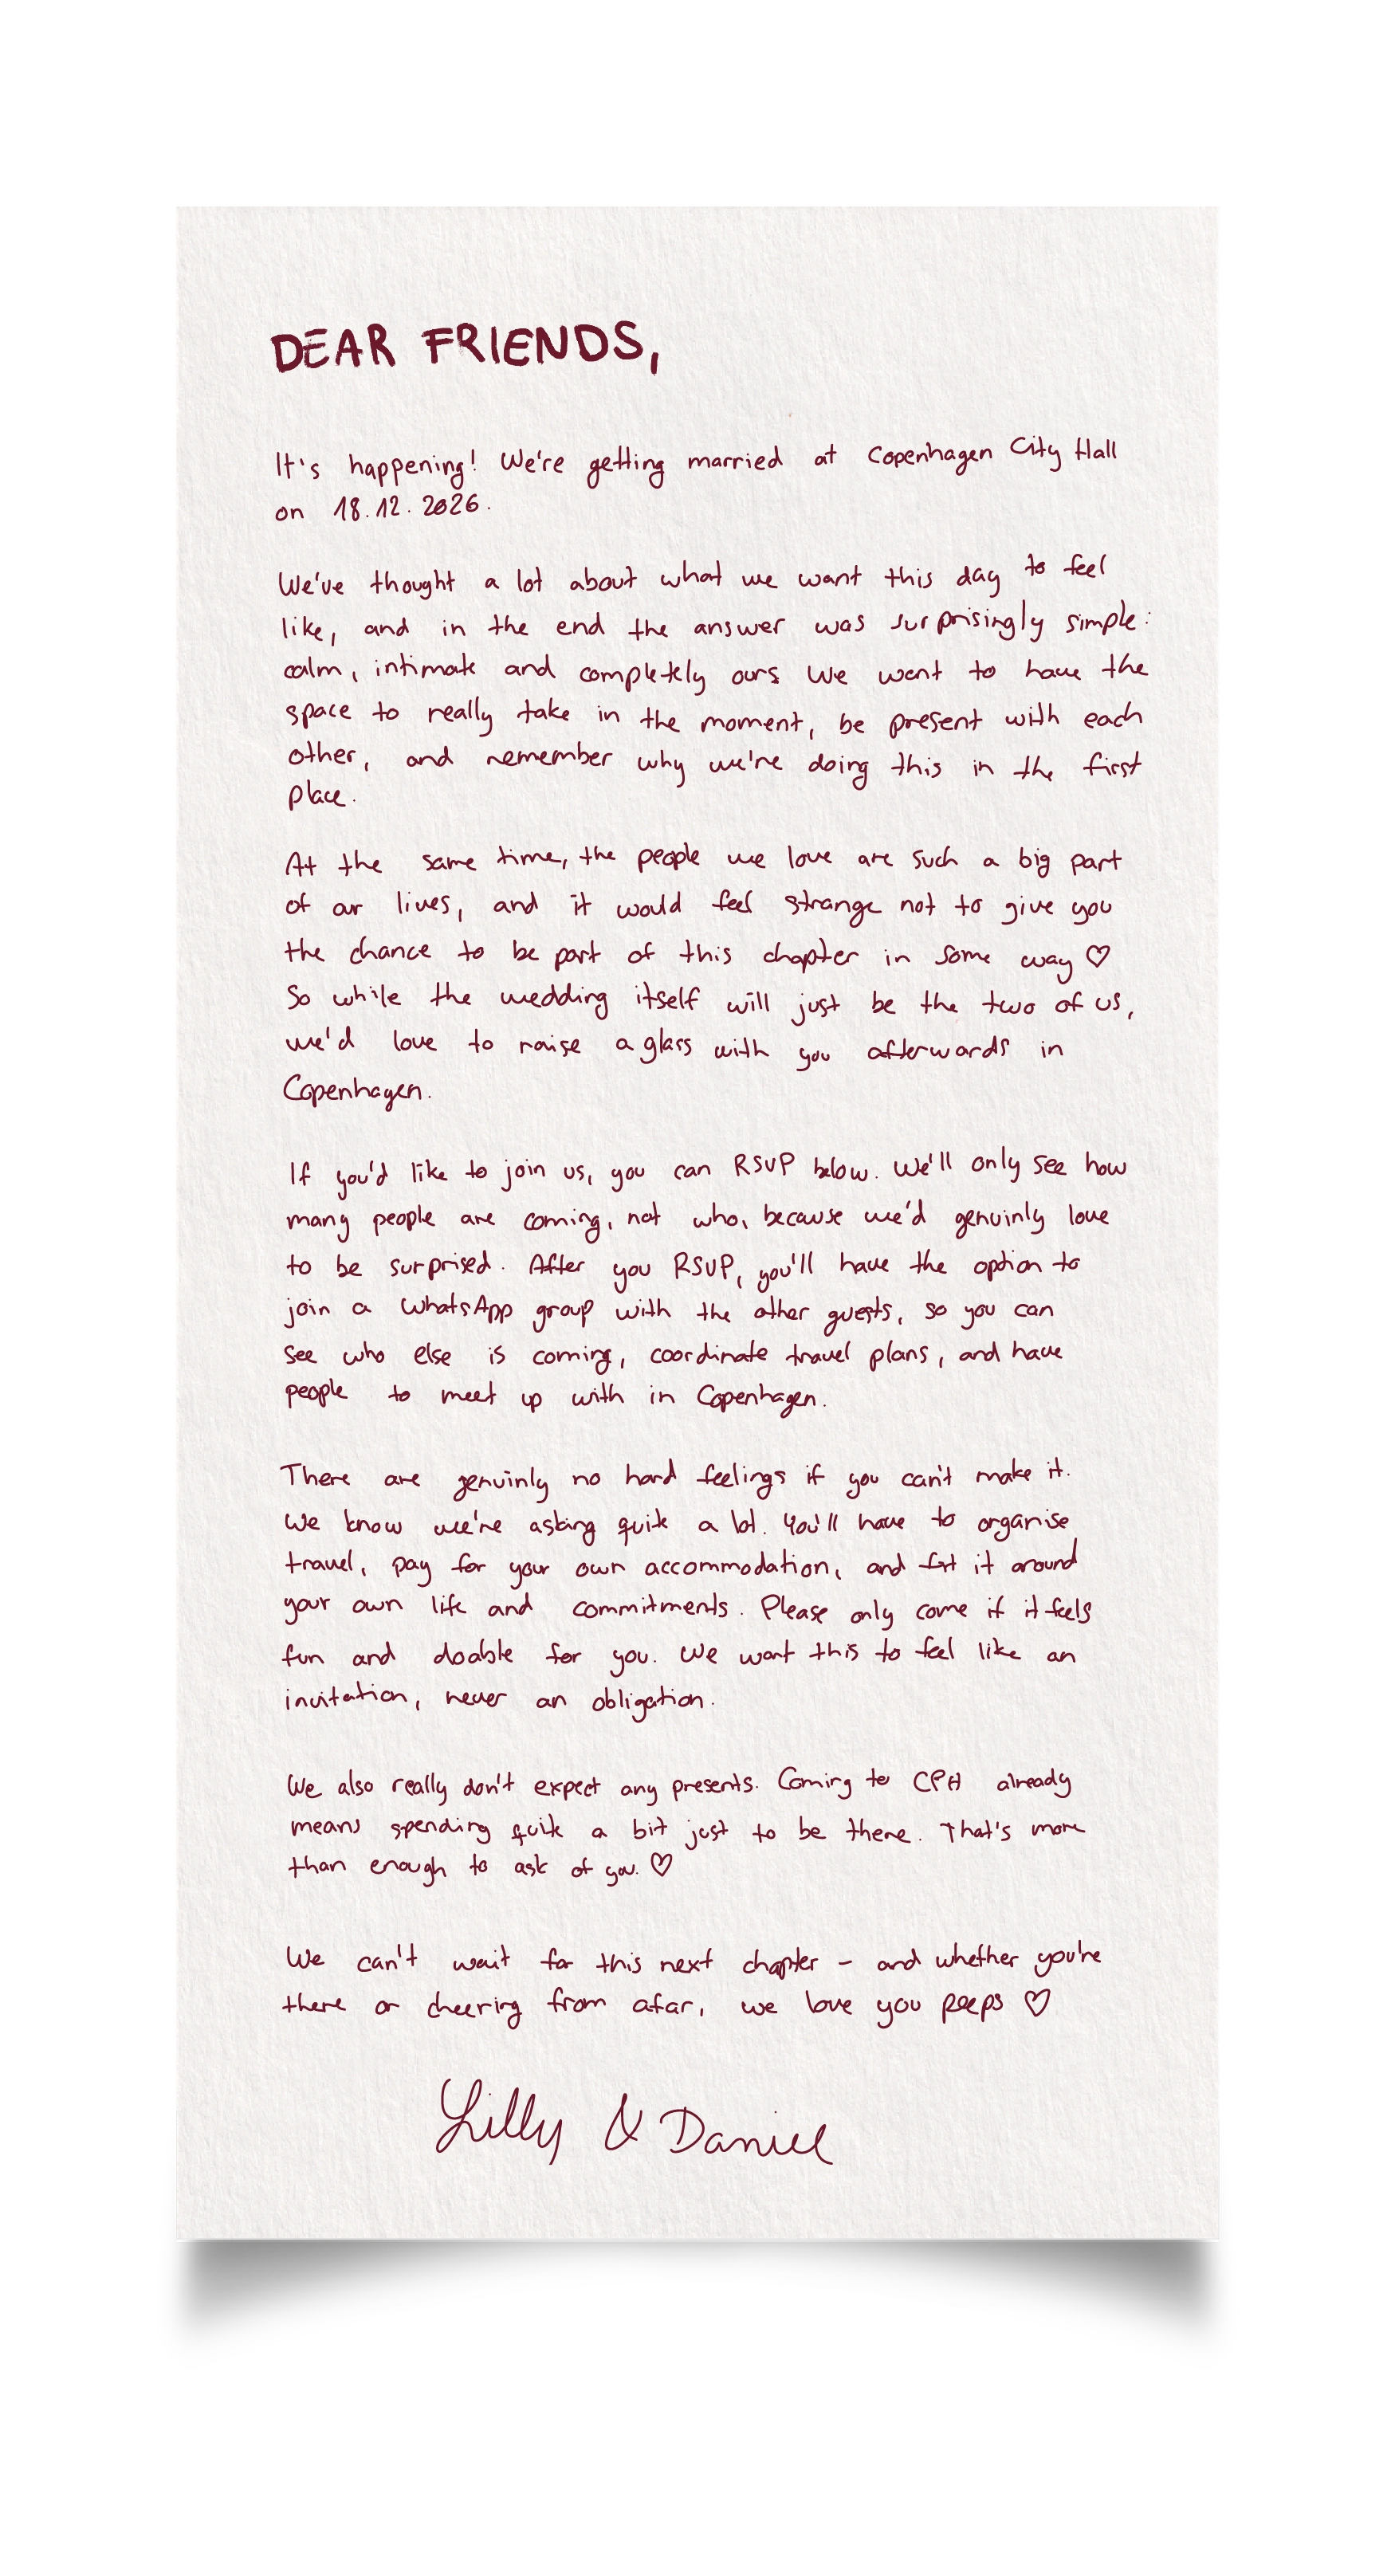 DEAR FRIENDS,
It's happening! We're getting married at Copenhagen City Hall
on 18.12.2026.
We've thought a lot about what we want this day to feel
like, and in the end the answer was surprisingly simple:
calm, intimate and completely ours. We want to have the
space to really take in the moment, be present with each
other, and remember why we're doing this in the first
place.
At the same time, the people we love are such a big part
of our lives, and it would feel strange not to give you
the chance to be part of this chapter in some way ♡
So while the wedding itself will just be the two of us,
we'd love to raise a glass with you afterwards in
Copenhagen.
If you'd like to join us, you can RSVP below. We'll only see how
many people are coming, not who, because we'd genuinly love
to be surprised. After you RSVP, you'll have the option to
join a WhatsApp group with the other guests, so you can
see who else is coming, coordinate travel plans, and have
people to meet up with in Copenhagen.
There are genuinly no hard feelings if you can't make it.
We know we're asking quite a lot. You'll have to organise
travel, pay for your own accommodation, and fit it around
your own life and commitments. Please only come if it feels
fun and doable for you. We want this to feel like an
invitation, never an obligation.
We also really don't expect any presents. Coming to CPH already
means spending quite a bit just to be there. That's more
than enough to ask of you. ♡
We can't wait for this next chapter – and whether you're
there or cheering from afar, we love you peeps ♡
Lilly & Daniel